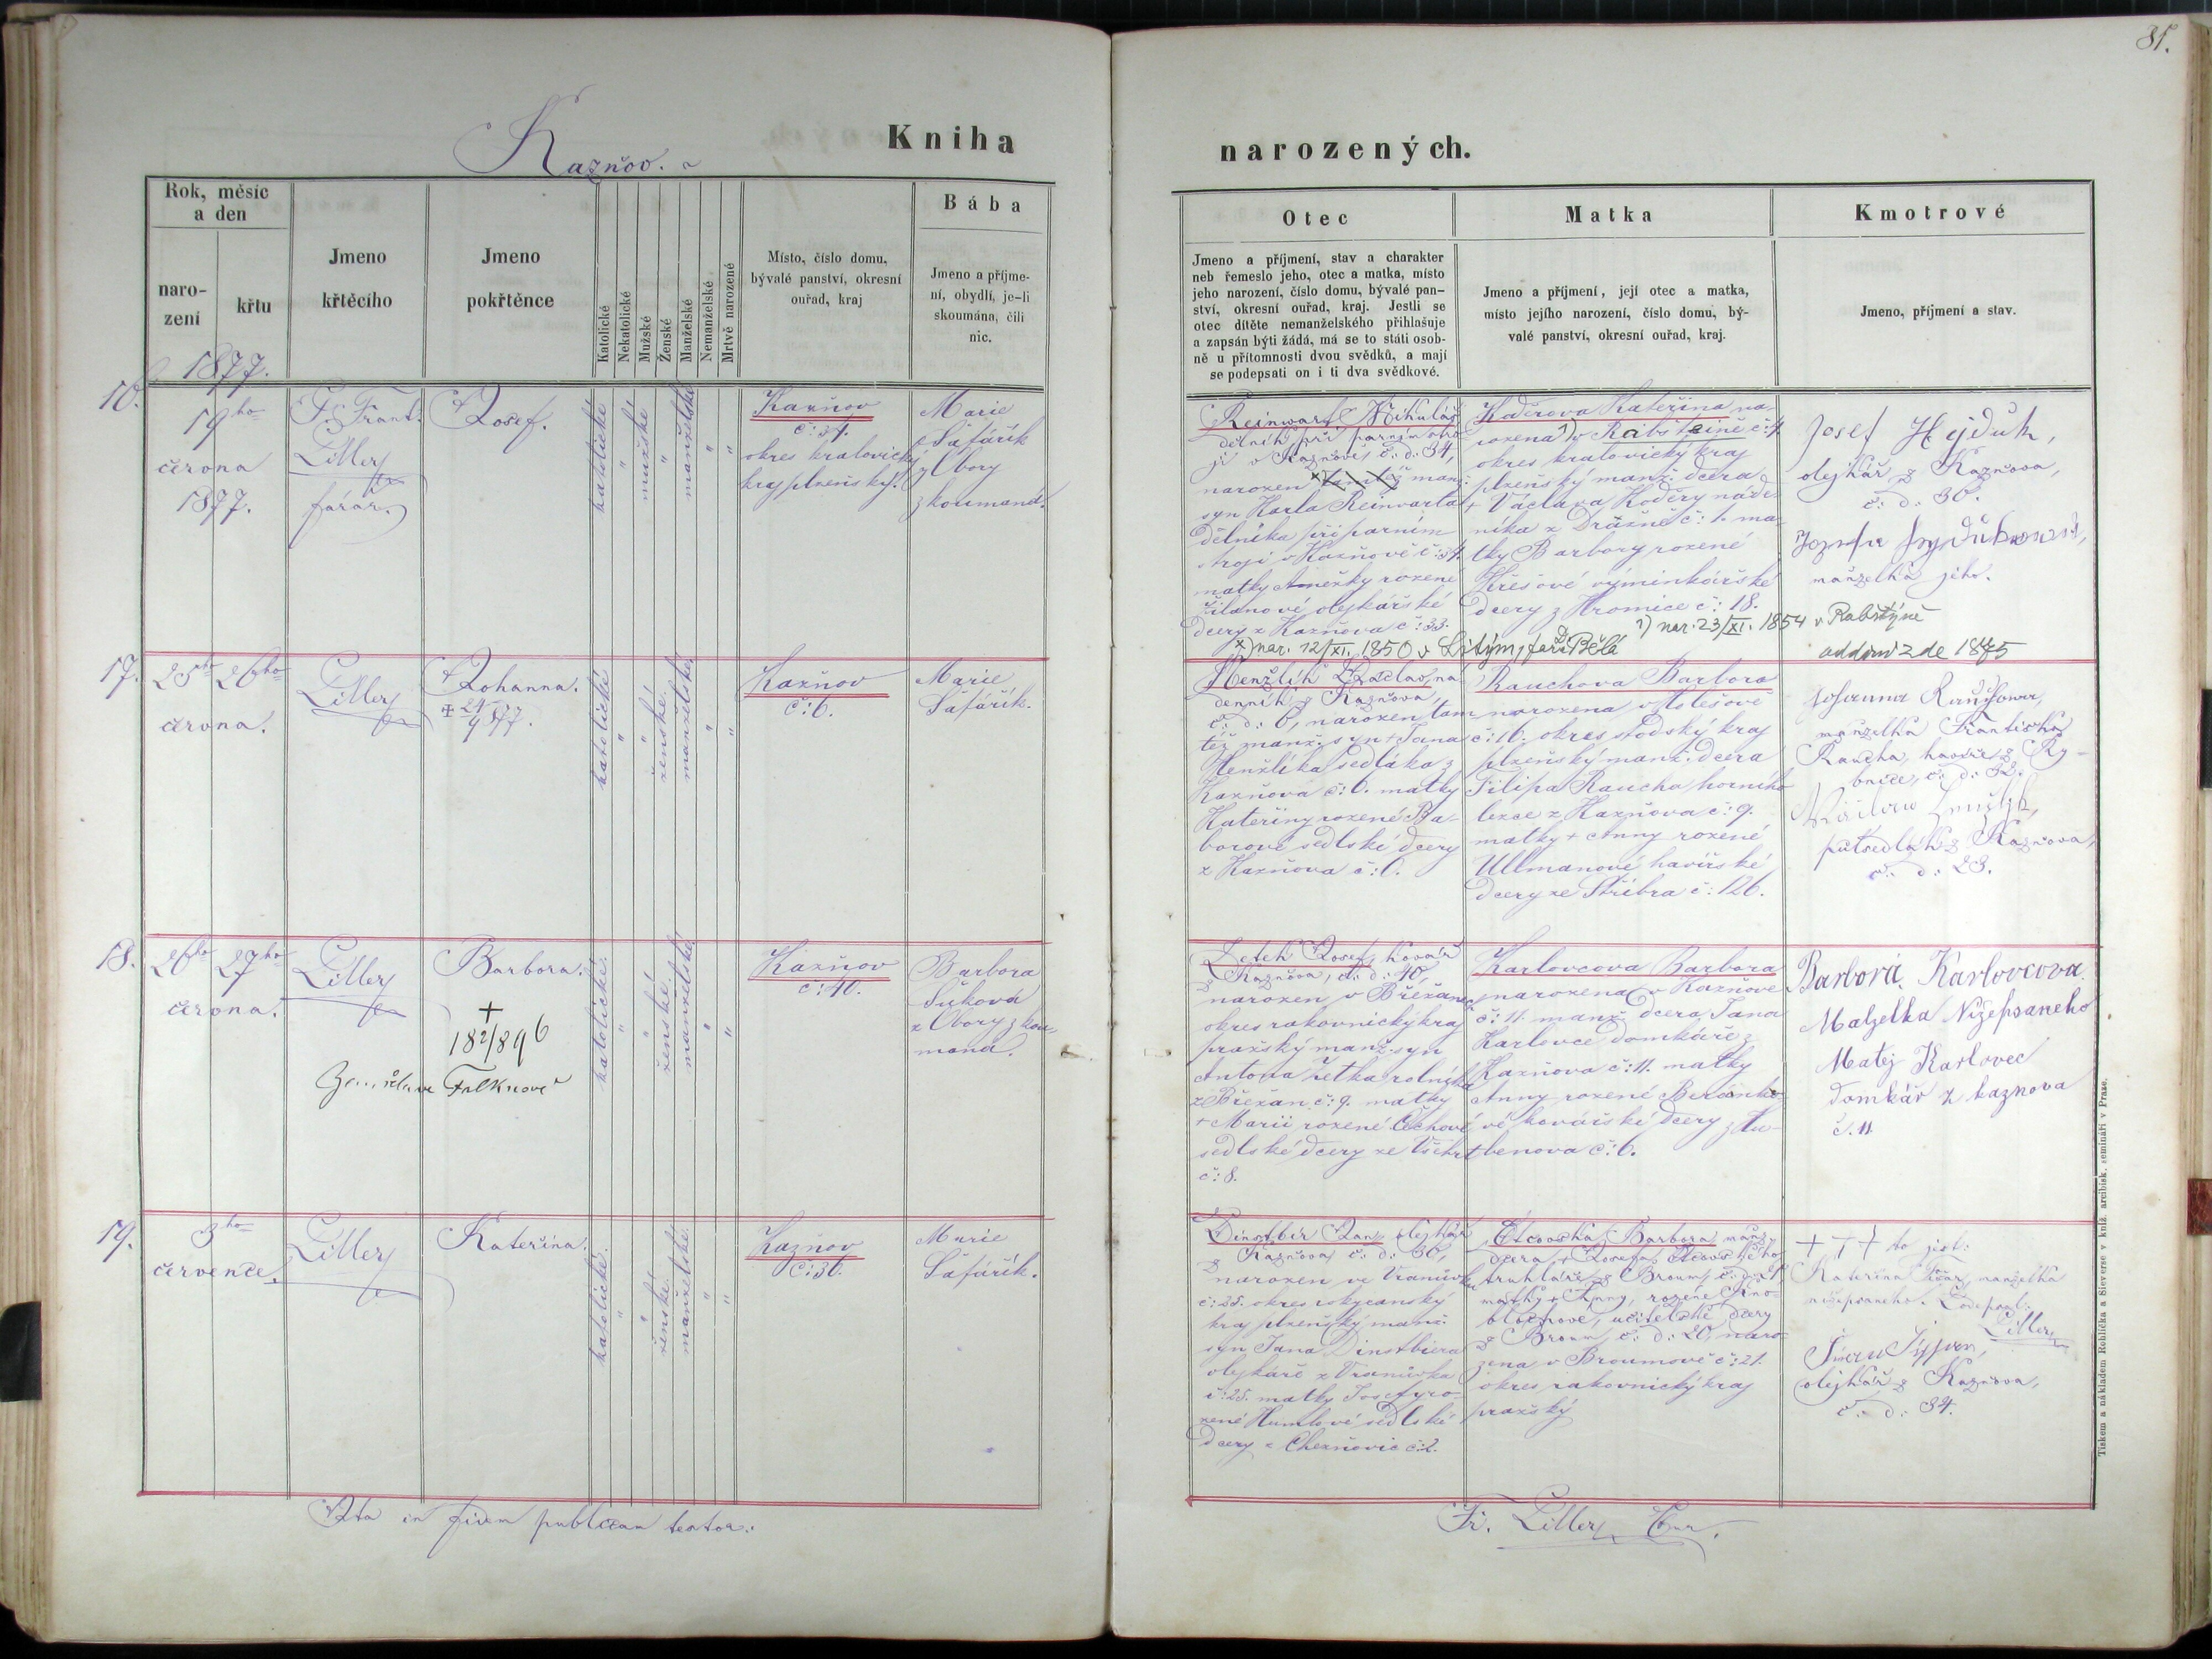 81.
Kaznov.
Kniha
narozených.
Rok, měsíc
a den
naro-
zení
křtu
Jmeno
křtěcího
Jmeno
pokřtěnce
Katolické
Nekatolické
Mužské
Ženské
Manželské
Nemanželské
Mrtvě narozené
Místo, číslo domu,
bývalé panství, okresní
ouřad, kraj
Bába
Jmeno a příjme-
ní, obydlí, je-li
skoumána, čili
nic.
Otec
Jmeno a příjmení, stav a charakter
neb řemeslo jeho, otec a matka, místo
jeho narození, číslo domu, bývalé pan-
ství, okresní ouřad, kraj. Jestli se
otec dítěte nemanželského přihlašuje
a zapsán býti žádá, má se to státi osob-
ně u přítomnosti dvou svědků, a mají
se podepsati on i ti dva svědkové.
Matka
Jmeno a příjmení, její otec a matka,
místo jejího narození, číslo domu, bý-
valé panství, okresní ouřad, kraj.
Kmotrové
Jmeno, příjmení a stav.
1877.
16.
19ho
června
1877.
P. Frant.
Liller
farář.
Josef.
katolické
mužské
manželské
Kazňov
č: 34.
okres kralovický
kraj plzeňský.
Marie
Šafářík
z Obory
zkoumaná.
Reinwart Mikuláš
dělník při parním stro
ji v Kaznově, č. d. 34,
narozen tamtéž manž.
syn Karla Reinvarta
dělníka při parním
stroji v Kazňově č: 34.
matky Anežky rozené
olejkářské
dcery z Kazňova č: 33.
x) nar. 12/XI. 1850 v Litým, fara D. Bělá
Koděrova Kateřina na-
rozena 1) v Rabšteině č: 4.
okres kralovický kraj
plzeňský manž. dcera
+ Václava Koděry náde-
níka z Dražně č: 1. ma-
tky Barbory rozené
Křešové výminkářské
dcery z Hromice č: 18.
1) nar. 23/XI. 1854 v Rabštýně
Josef Hejduk,
olejkář z Kaznova,
č. d. 30.
manželka jeho.
oddáni zde 1875
17.
25ho 26ho
června.
Liller
Johanna.
katolické
ženské.
manželské
Kazňov
č: 6.
Marie
Šafářík.
Henžlík Vádlav, ná
denník z Kaznova,
č. d. 6, narozen tam
též manž. syn + Jana
Henžlíka sedláka z
Kazňova č: 6. matky
Kateřiny rozené Ba-
borové sedlské dcery
z Kazňova č: 6.
Rauchova Barbora
narozena v Holešově
č: 16. okres stodský kraj
plzeňský manž. dcera
Filipa Raucha horního
lezce z Kazňova č: 9.
matky + Anny rozené
Ullmanové havířské
dcery ze Stříbra č: 126.
manželka Františka
Raucha, havíře z Ry-
bnice, č. d. 32.
půlsedlák z Kaznova,
č. d. 23.
18.
26ho 27ho
června.
Liller
Barbora.
+
18 2/8 96
Falknově
katolické.
ženské.
manželské
Kazňov
č: 40.
Barbora
Suková
z Obory zkou-
maná.
Letek Josef, kovář
z Kaznova, č. d. 40,
narozen v Břežanech
okres rakovnický kraj
pražský manž. syn
Antona Letka rolníka
z Břežan č: 9. matky
+ Marii rozené Čechové
sedlské dcery ze Všehrt
č: 8.
Karlovcova Barbora
narozena v Kazňově
č: 11. manž. dcera Jana
Karlovce domkáře z
Kazňova č: 11. matky
Anny rozené Beránko-
vé kovářské dcery z Lu-
benova č: 6.
Barbora Karlovcova
Malzelka Nižepsaneho
Matěj Karlovec
domkář z kaznova
č. 11
19.
3ho
července.
Liller
Kateřina.
katolické.
ženské.
manželské.
Kazňov
č: 36.
Marie
Šafářík.
Dinstbir Jan, olejkář
z Kaznova č. d. 36,
narozen ve Vranůvku
č: 25. okres rokycanský
kraj plzeňský manž.
syn Jana Dinstbiera
olejkáře z Vranůvka
č: 25. matky Josefy ro-
zené Humlové sedlské
dcery z Cheznovic č: 2.
Barbora, manž.
dcera + Josefa
truhláře z Broum,
matky + Anny, rozené
učitelské dcery
z Broum, č. d. 20, naro-
zena v Broumově č: 21.
okres rakovnický kraj
pražský
+ + + to jest:
Kateřina manželka
nížepsaneho. Podepsal:
Liller
olejkář z Kaznova,
č. d. 34.
Ita in fidem publicam testor:
Fr. Liller Cur.
Tiskem a nákladem Rohlíčka a Sieverse v kníž. arcibisk. semináři v Praze.